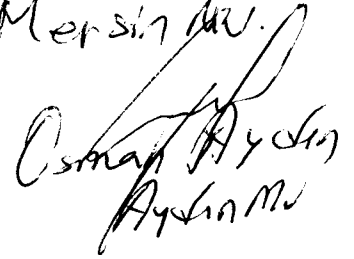 Mersin Mv.
Osman Aydın
Aydın Mv